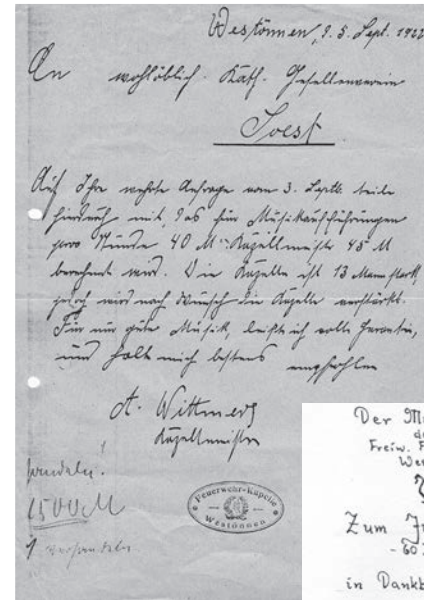 Westönnen, d. 5. Sept. 1922
An wohllöblich. Kath. Gesellenverein
Soest
Auf Ihre werte Anfrage vom 3. Septb. teile
hierdurch mit, das für Musikaufführungen
pro Stunde 40 M Kapellmeister 45 M
berechnet wird. Die Kapelle ist 13 Mann stark,
jedoch wird nach Wunsch die Kapelle verstärkt.
Für nur gute Musik, leiste ich volle Garantie,
und halte mich bestens empfohlen
A. Wittmers
Kapellmeister
1500 M
1
Feuerwehr-Kapelle
Westönnen
Der
Freiw. F
Wes
Zum Ju
in Dankb